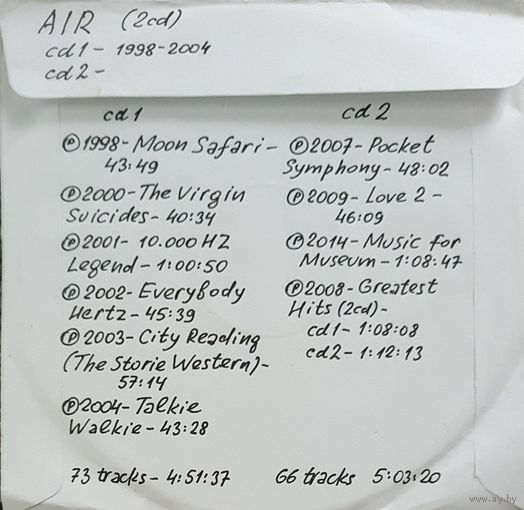 AIR (2cd)
cd1 - 1998-2004
cd2 -
cd1
℗1998 - Moon Safari -
43:49
℗2000 - The Virgin
Suicides - 40:34
℗2001 - 10.000 HZ
Legend - 1:00:50
℗2002 - Everybody
Hertz - 45:39
℗2003 - City Reading
(The Storie Western) -
57:14
℗2004 - Talkie
Walkie - 43:28
73 tracks - 4:51:37
cd2
℗2007 - Pocket
Symphony - 48:02
℗2009 - Love 2 -
46:09
℗2014 - Music for
Museum - 1:08:47
℗2008 - Greatest
Hits (2cd) -
cd1 - 1:08:08
cd2 - 1:12:13
66 tracks 5:03:20
www.ay.by